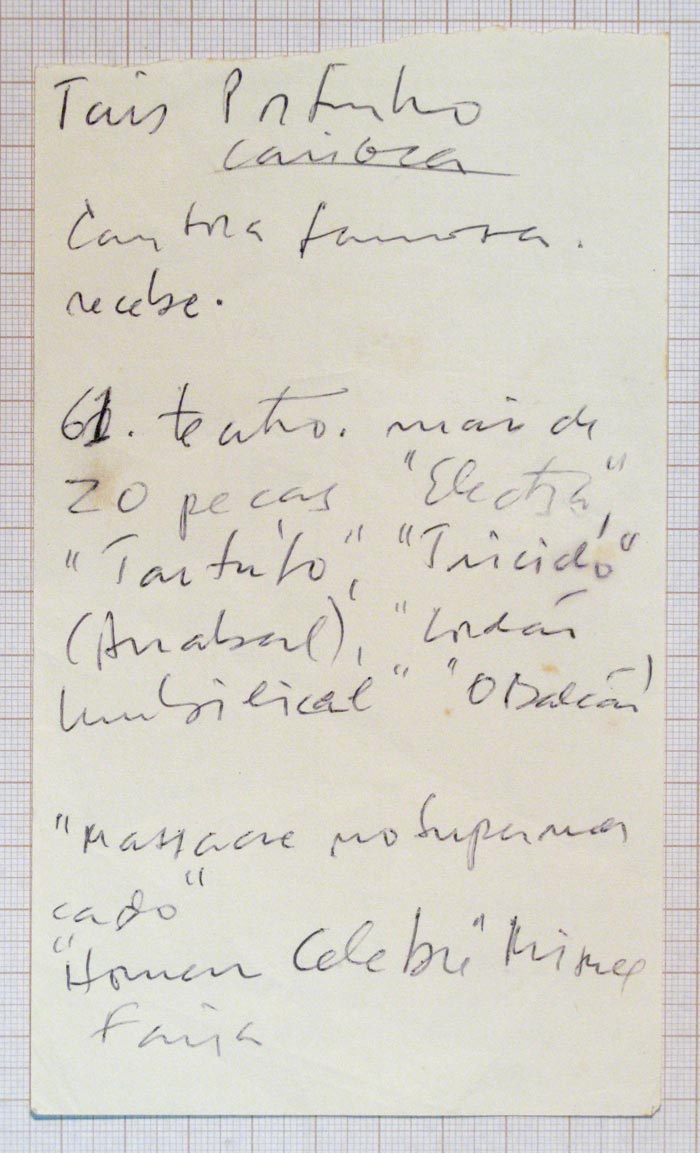 Tais Portinho
carioca
Cantora famosa.
recebe.
61. teatro. mais de
20 peças "Electra",
"Tartufo", "Tricido"
(Arrabal), "Cordão
Umbilical" "O Balcão"
"Massacre no Supermer
cado"
"Homem Celebre" Miguel
Faria